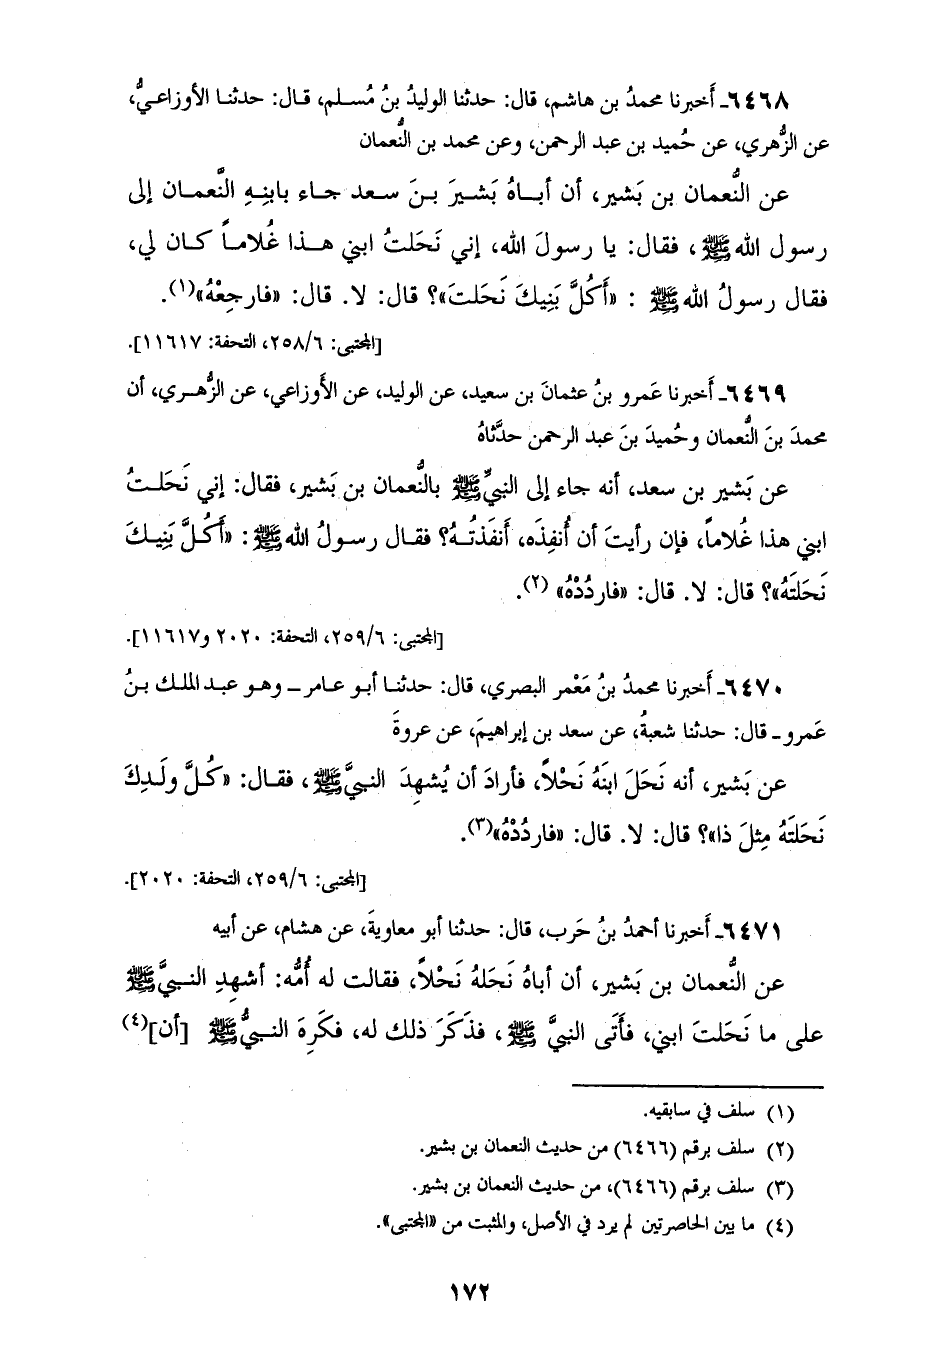 ٦٤٦٨ـ أَخبرنا محمدُ بن هاشم، قال: حدثنا الوليدُ بنُ مُسلم، قال: حدثنا الأوزاعيُّ،
عن الزُّهري، عن حُميد بن عبد الرحمن، وعن محمد بن النُّعمان
عن النُّعمان بن بَشير، أن أباهُ بَشيرَ بنَ سعد جاء بابنِهِ النُّعمان إلى
رسول الله ﷺ، فقال: يا رسولَ الله، إني نَحَلتُ ابني هذا غُلاماً كان لي،
فقال رسولُ الله ﷺ : «أَكُلَّ بَنِيكَ نَحَلتَ»؟ قال: لا. قال: «فارجِعْهُ»(١).
[المجتبى: ٢٥٨/٦، التحفة: ١١٦١٧].
٦٤٦٩ـ أَخبرنا عَمرو بنُ عثمانَ بن سعيد، عن الوليد، عن الأوزاعي، عن الزُّهري، أن
محمدَ بنَ النُّعمان وحُميدَ بنَ عبد الرحمن حدَّثاهُ
عن بَشير بن سعد، أنه جاء إلى النبيِّ ﷺ بالنُّعمان بن بَشير، فقال: إني نَحَلتُ
ابني هذا غُلاماً، فإن رأيتَ أن أُنفِذَه، أَنفَذتُهُ؟ فقال رسولُ الله ﷺ: «أَكُلَّ بَنِيكَ
نَحَلتَهُ»؟ قال: لا. قال: «فاردُدْهُ» (٢).
[المجتبى: ٢٥٩/٦، التحفة: ٢٠٢٠ و١١٦١٧].
٦٤٧٠ـ أَخبرنا محمدُ بنُ مَعْمر البصري، قال: حدثنا أبو عامر ـ وهو عبد الملك بنُ
عَمرو ـ قال: حدثنا شعبةُ، عن سعد بن إبراهيمَ، عن عروةَ
عن بَشير، أنه نَحَلَ ابنَهُ نَحْلاً، فأرادَ أن يُشهِدَ النبيَّ ﷺ، فقال: «كُلَّ ولَدِكَ
نَحَلتَهُ مِثلَ ذا»؟ قال: لا. قال: «فاردُدْهُ»(٣).
[المجتبى: ٢٥٩/٦، التحفة: ٢٠٢٠].
٦٤٧١ـ أَخبرنا أحمدُ بنُ حَرب، قال: حدثنا أبو معاويةَ، عن هشام، عن أبيه
عن النُّعمان بن بَشير، أن أباهُ نَحَلهُ نَحْلاً، فقالت له أُمُّه: أشهِدِ النبيَّ ﷺ
على ما نَحَلتَ ابني، فأَتَى النبيَّ ﷺ، فذَكَرَ ذلك له، فكَرِهَ النبيُّ ﷺ [أن](٤)
(١) سلف في سابقيه.
(٢) سلف برقم (٦٤٦٦) من حديث النعمان بن بشير.
(٣) سلف برقم (٦٤٦٦)، من حديث النعمان بن بشير.
(٤) ما بين الحاصرتين لم يرد في الأصل، والمثبت من «المجتبى».
١٧٢